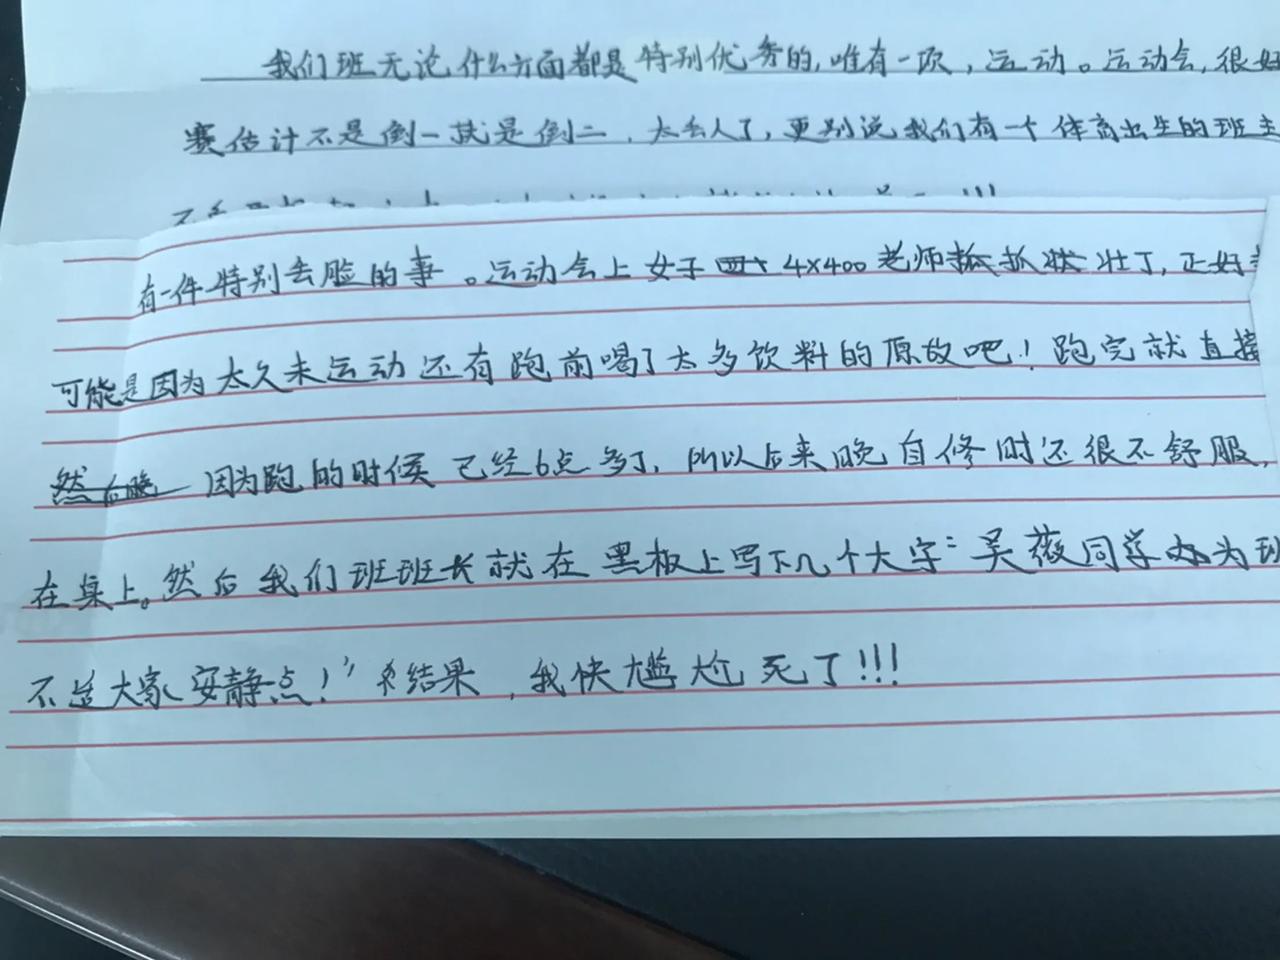 我们班无论什么方面都是特别优秀的,唯有一项,运动。运动会,很好
赛估计不是倒一就是倒二,太丢人了,更别说我们有一个体育出生的班主
有一件特别丢脸的事。运动会上女子4×400老师抓壮丁,正好
可能是因为太久未运动还有跑前喝了太多饮料的原故吧!跑完就直接
因为跑的时候已经6点多了,所以后来晚自修时还很不舒服,
在桌上。然后我们班班长就在黑板上写下几个大字:吴薇同学为班
大家安静点!”结果,我快尴尬死了!!!